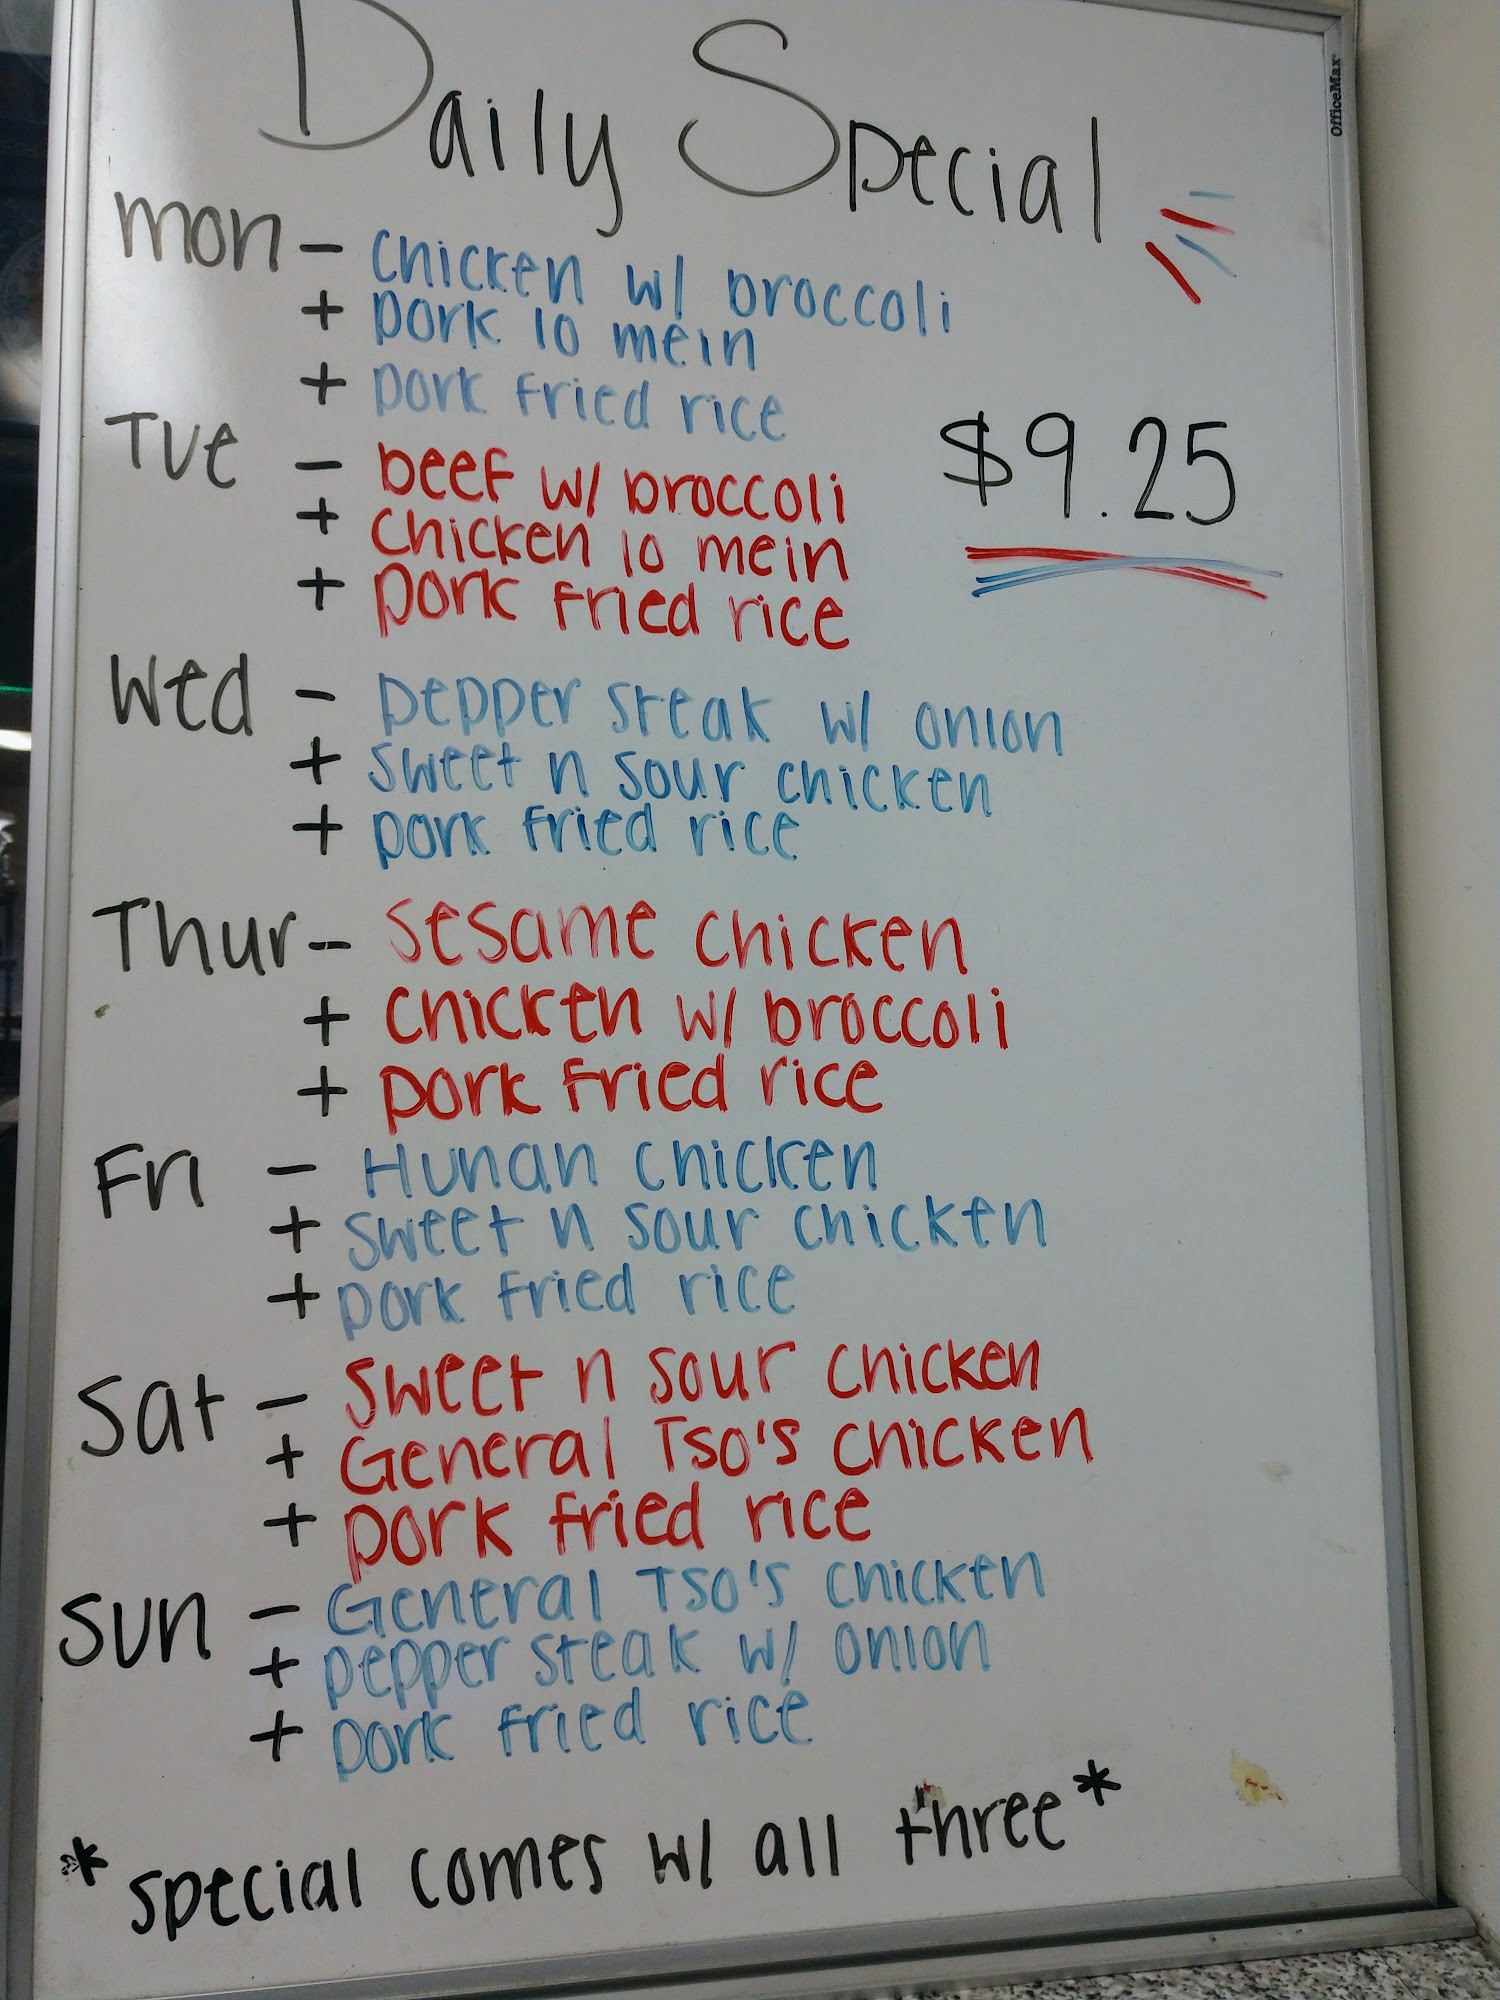 Daily Special
OfficeMax
mon - chicken w/ broccoli
+ pork lo mein
+ pork fried rice
Tue - beef w/ broccoli
+ chicken lo mein
+ pork fried rice
$9.25
Wed - pepper steak w/ onion
+ sweet n sour chicken
+ pork fried rice
Thur - sesame chicken
+ chicken w/ broccoli
+ pork fried rice
Fri - Hunan chicken
+ sweet n sour chicken
+ pork fried rice
Sat - sweet n sour chicken
+ General Tso's chicken
+ pork fried rice
Sun - General Tso's chicken
+ pepper steak w/ onion
+ pork fried rice
*special comes w/ all three*